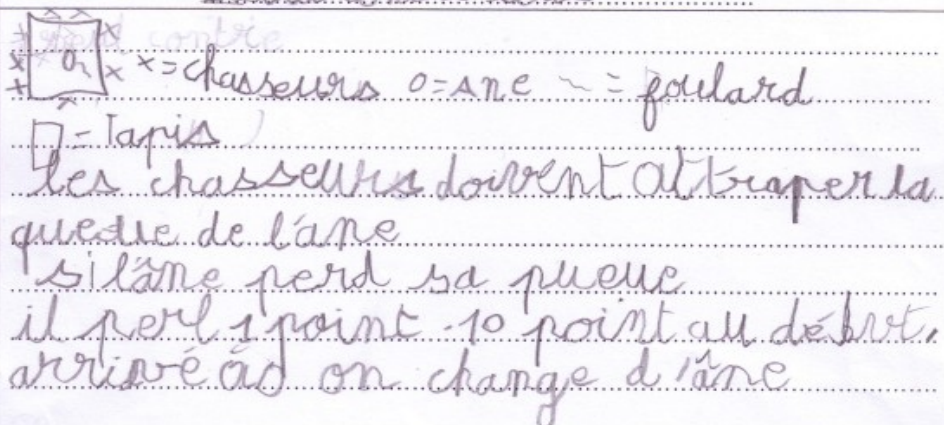 x = chasseurs o = ane ~ = foulard
□ = Tapis
les chasseurs doivent attraper la
queue de l'âne
si l'âne perd sa pueue
il perl 1 point. 10 point au début.
arrivé à 0 on change d'âne